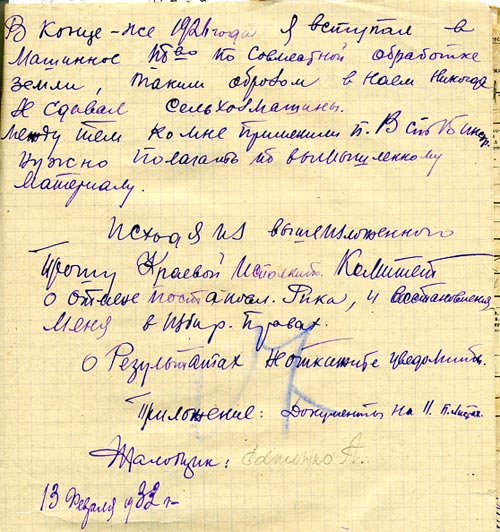 В Конце-же 1926 года Я вступал в
Машинное тво по совместной обработке
земли, таким образом в Наем Никогда
Не сдавал сельхозмашины.
между тем ко мне применили п. В ст
Нужно полагать по вымышленному
материалу.
Исходя из вышеизложенного
Прошу Краевой Исполнит. Комитет
о отмене постановл. Рика, и востановлении
меня в избир. Правах.
О Результатах Не откажите уведомить.
Приложение: Документы на 11. п. листах.
Жалобщик:
13 Февраля 1932 г-